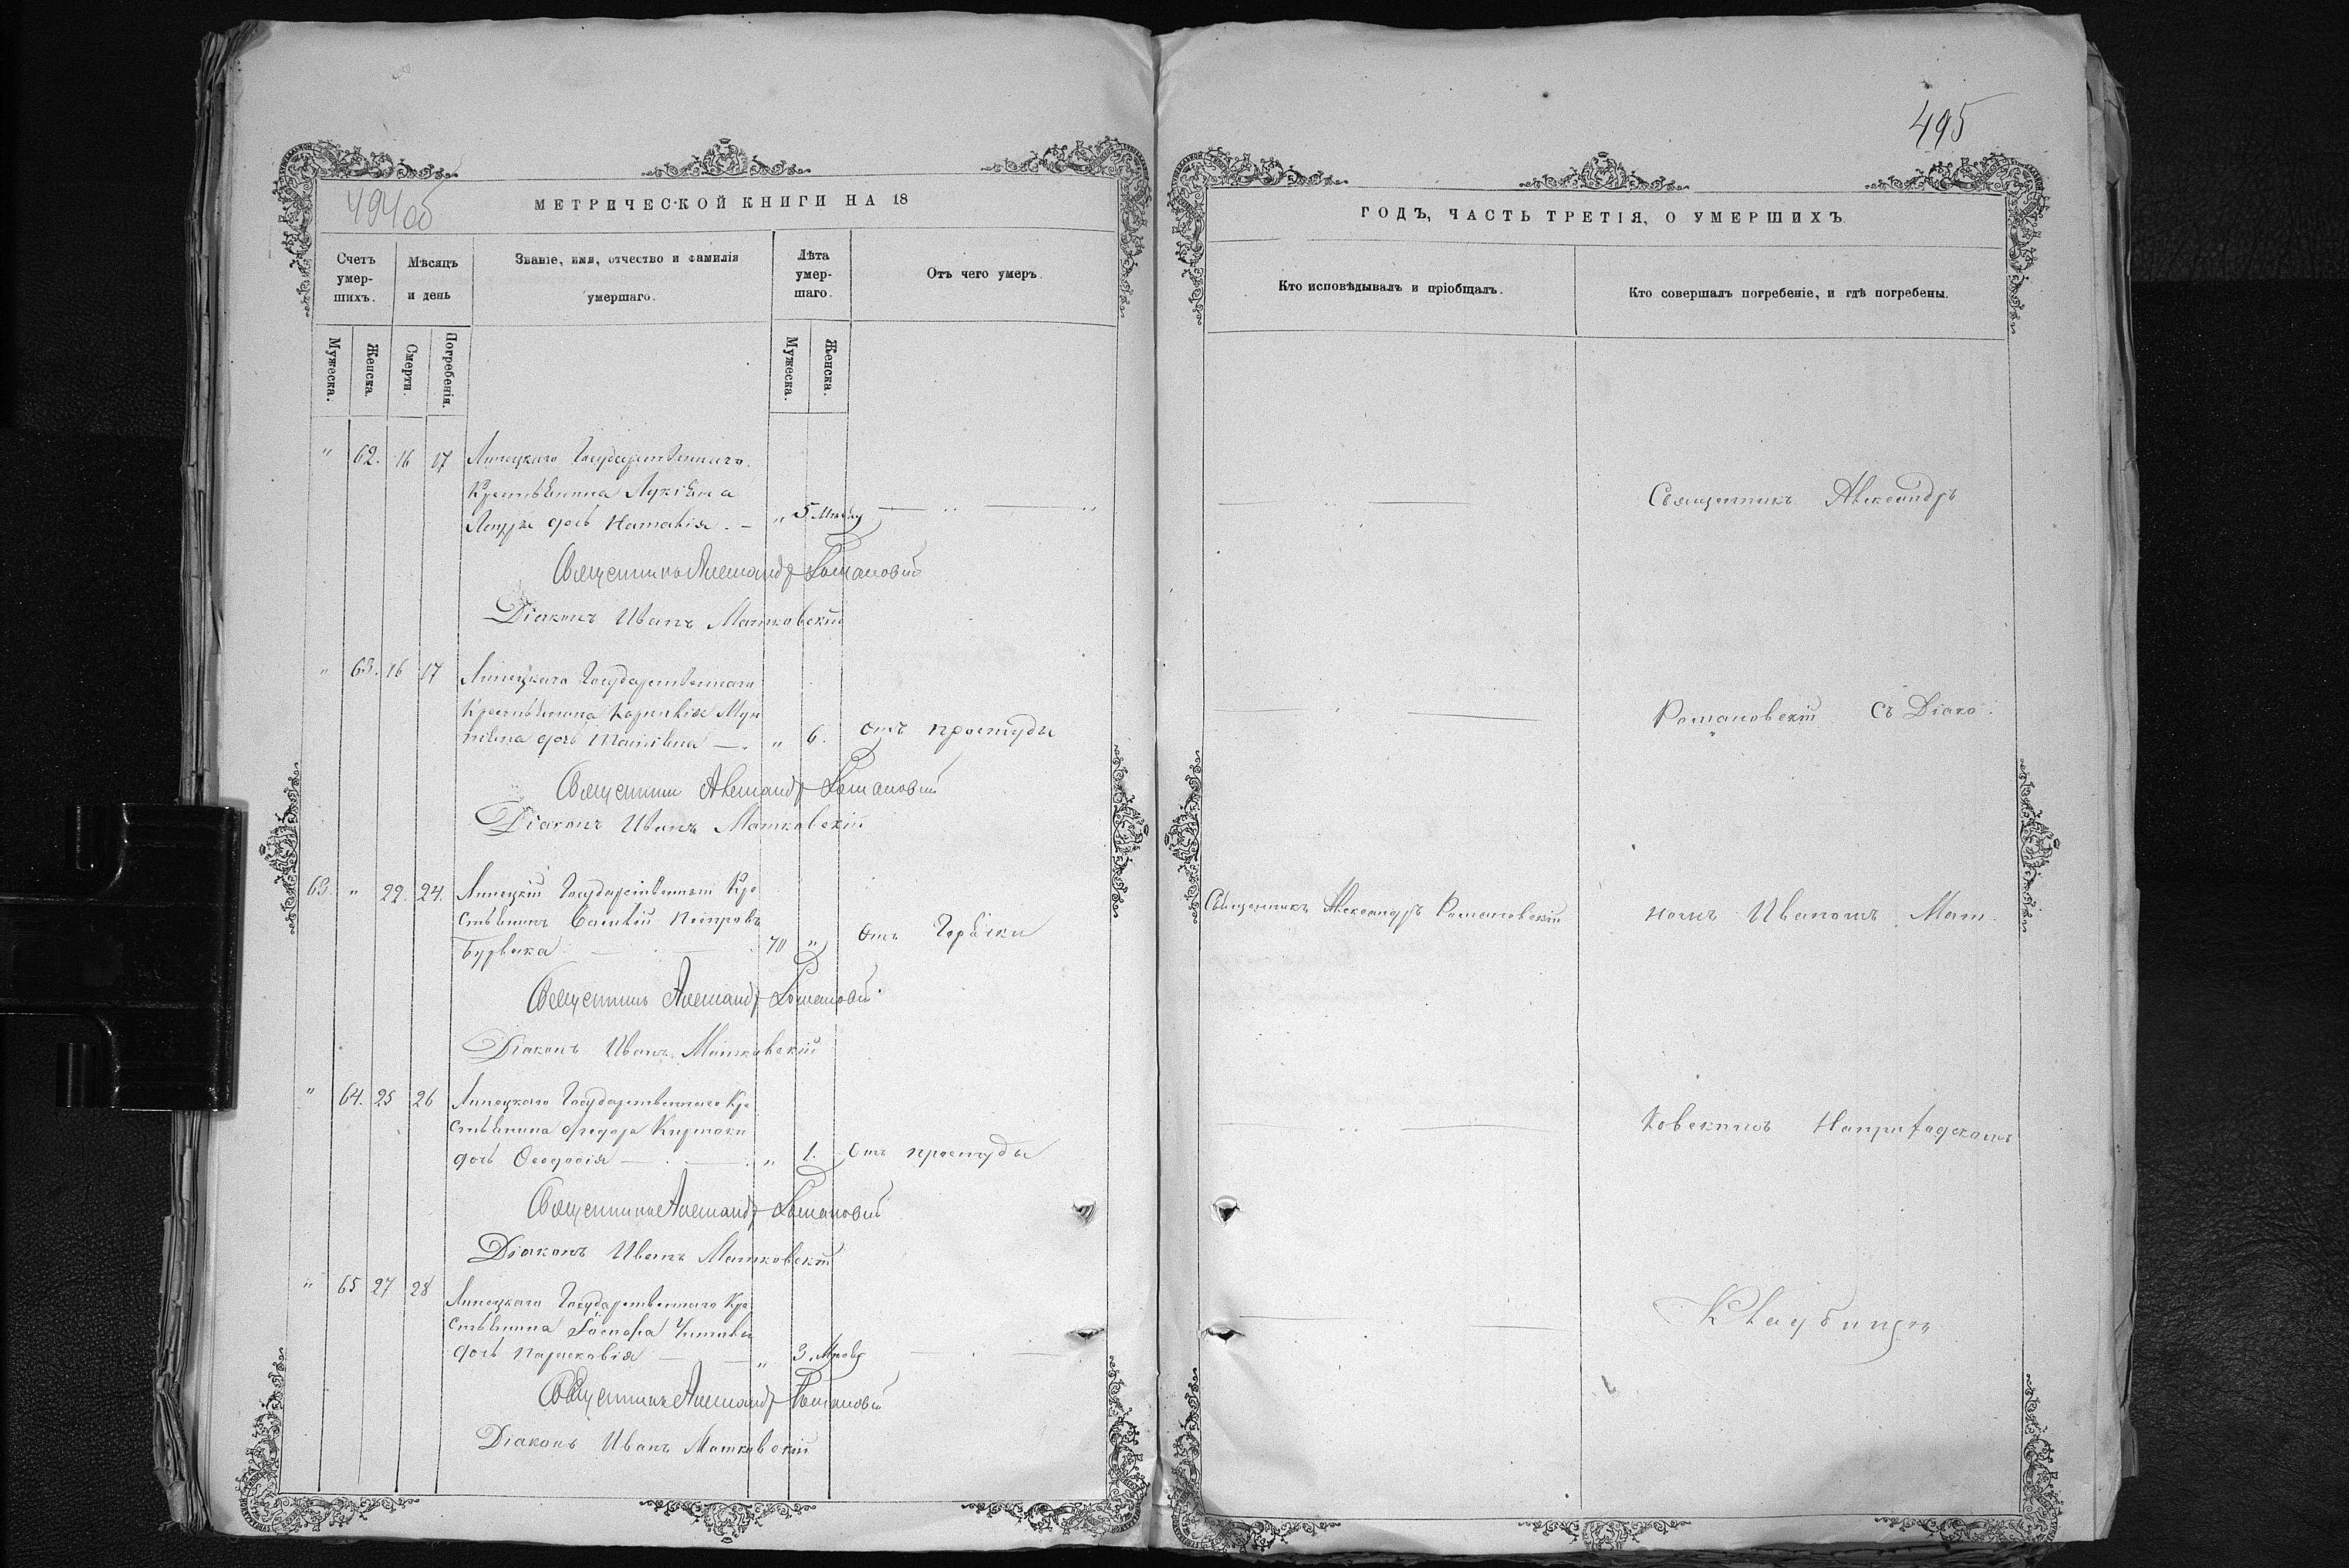 494 об
МЕТРИЧЕСКОЙ КНИГИ НА 18
Счетъ умер-шихъ.
Мѣсяцъ и день
Званіе, имя, отчество и фамилія умершаго.
Лѣта умер-шаго.
Отъ чего умеръ.
Мужеска.
Женска.
Смерти.
Погребенія.
Мужеска.
Женска.
" 62. 16 17 Липецкаго Государственнаго
Крестьянина Лукіана
дочь Наталія. — " 5 —— " —— "
Священникъ Александръ Романовскій
Діаконъ Иванъ Матковскій
" 63. 16 17 Липецкаго Государственнаго
Крестьянина
дочь — " 6. отъ простуды
Священникъ Александръ Романовскій
Діаконъ Иванъ Матковскій
63. " 22. 24. Липецкій Государственный Кре
стьянинъ Василій Петровъ
Бурлака 70 " отъ Горячки
Священникъ Александръ Романовскій
Діаконъ Иванъ Матковскій
" 64. 25 26 Липецкаго Государственнаго Кре
стьянина Федора
дочь Феодосія — " 1. Отъ простуды
Священникъ Александръ Романовскій
Діаконъ Иванъ Матковскій
" 65 27 28 Липецкаго Государственнаго Кре
стьянина
дочь Параскевія — " 3.
Священникъ Александръ Романовскій
Діаконъ Иванъ Матковскій
495
ГОДЪ, ЧАСТЬ ТРЕТІЯ, О УМЕРШИХЪ.
Кто исповѣдывалъ и пріобщалъ.
Кто совершалъ погребеніе, и гдѣ погребены.
Священникъ Александръ
Романовскій Съ Діако
Священникъ Александръ Романовскій
номъ Иваномъ Мат
ковскимъ На приходскомъ
Кладбищѣ